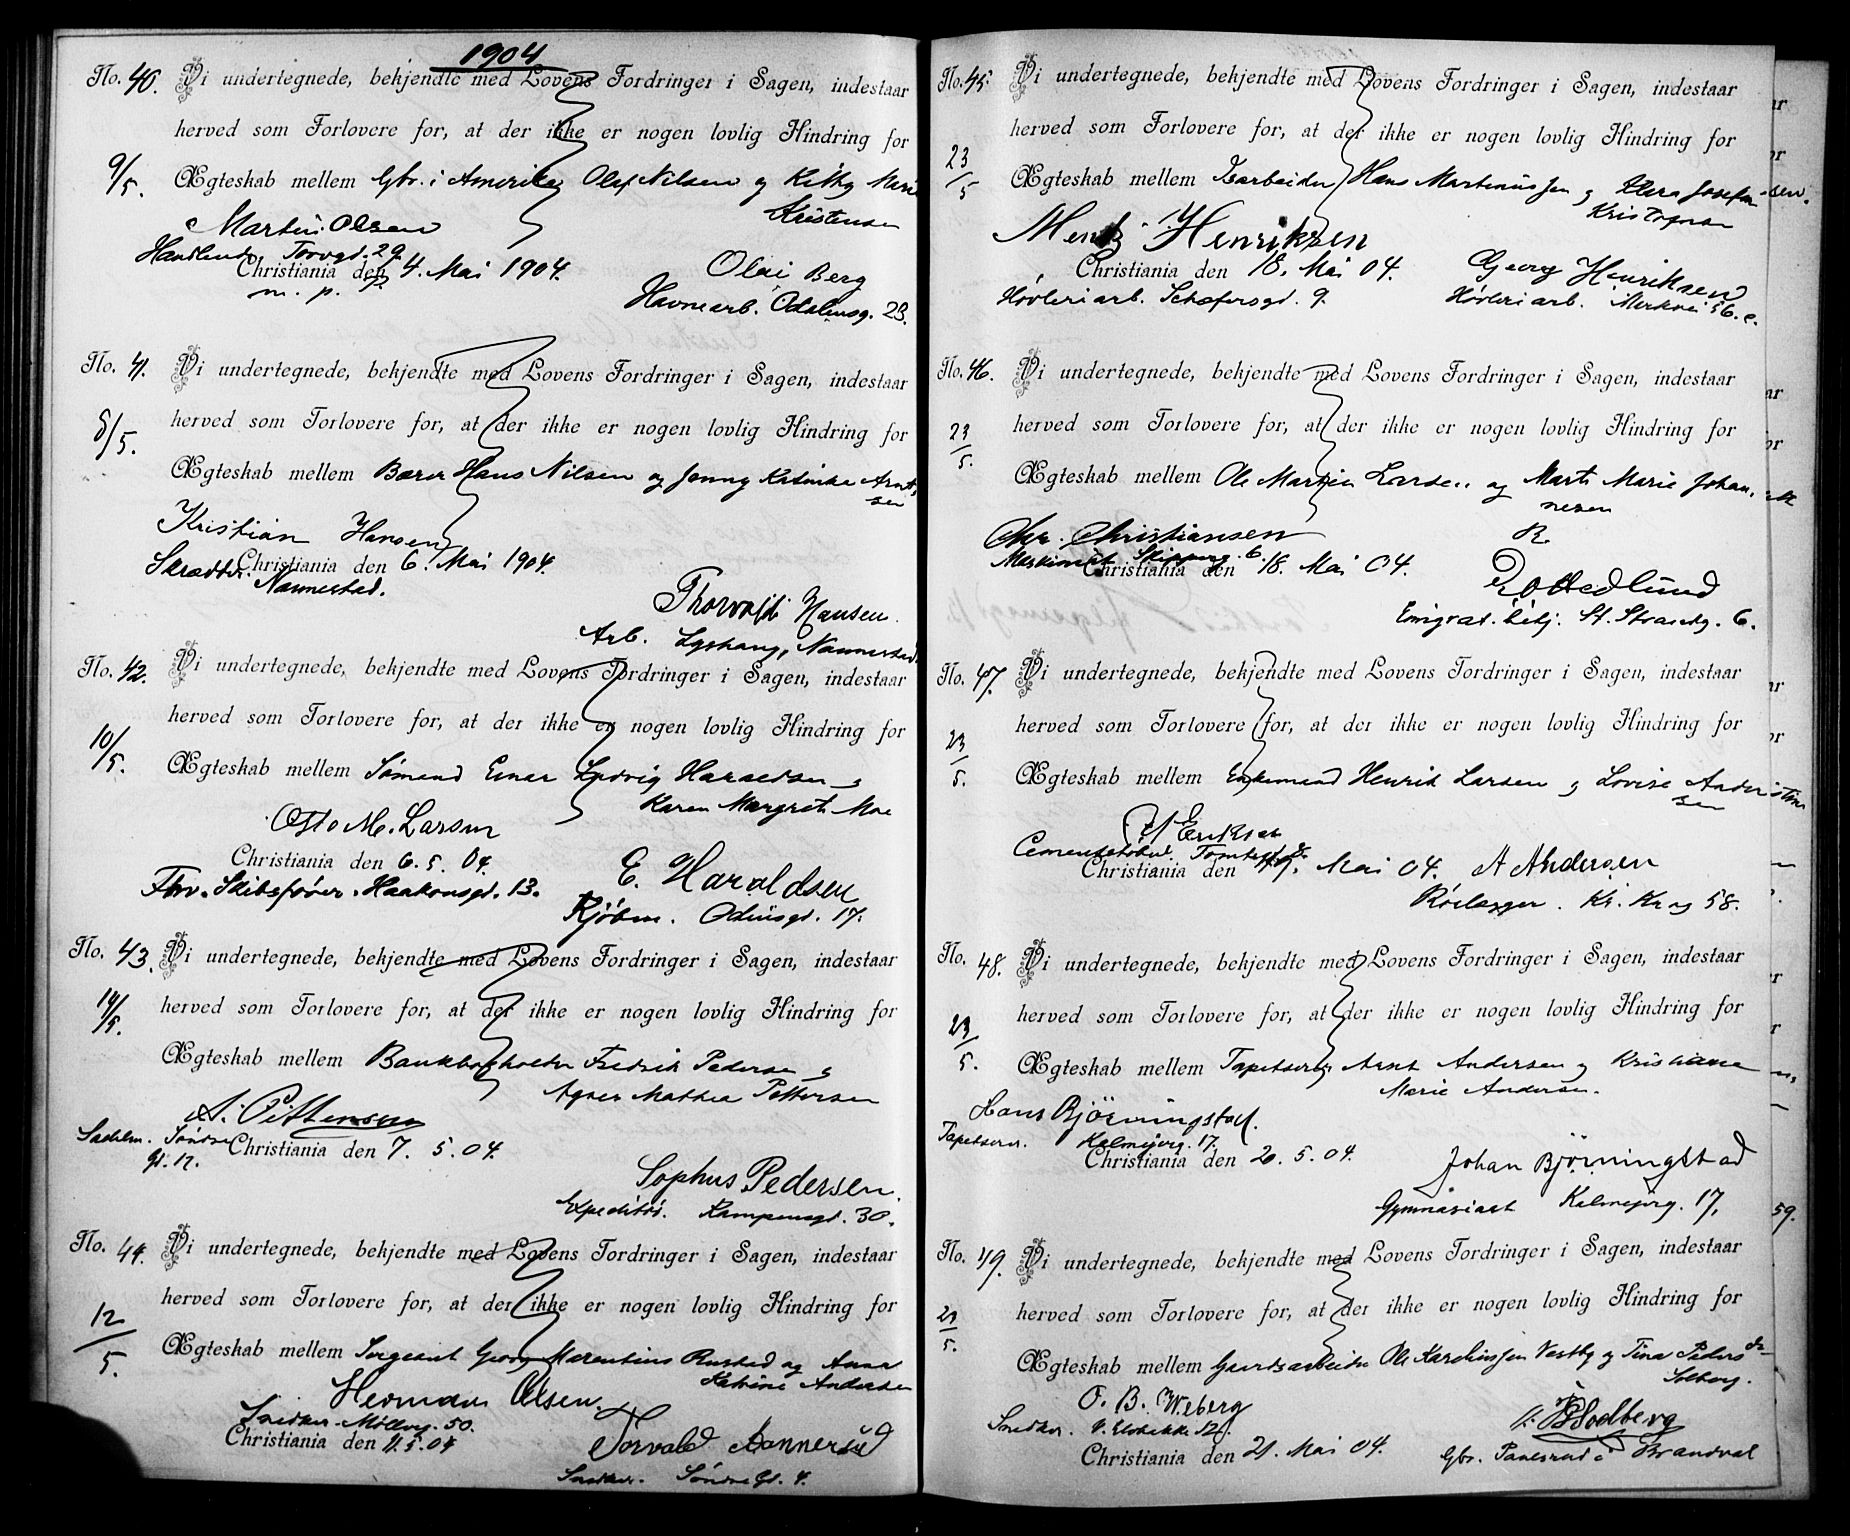 1904
No. 40. Vi undertegnede, bekjendte med Lovens Fordringer i Sagen, indestaar
herved som Forlovere for, at der ikke er nogen lovlig Hindring for
9/5. Ægteskab mellem Gbr. i Amerika Olaf Nilsen og Kitty Marie
Kristensen
Martin Olsen
Handlende Torvgd. 29.
Christiania den 4. Mai 1904.
m. p. p.
Olai Berg
Havnearb. Odalsg. 23.
No. 41. Vi undertegnede, bekjendte med Lovens Fordringer i Sagen, indestaar
herved som Forlovere for, at der ikke er nogen lovlig Hindring for
8/5. Ægteskab mellem Bærer Hans Nilsen og Jenny Katinka Arnt
sen
Kristian Hansen
Skrædder. Nannestad.
Christiania den 6. Mai 1904.
Thorvald Hansen.
Arb. Nannestad
No. 42. Vi undertegnede, bekjendte med Lovens Fordringer i Sagen, indestaar
herved som Forlovere for, at der ikke er nogen lovlig Hindring for
10/5. Ægteskab mellem Sømand Einar Ludvig Haraldsen og
Karen Margrete Moe
Otto M. Larsen
Christiania den 6. 5. 04.
Fhv. Skibsfører. Haakonsgd. 13.
E. Haraldsen
Kjøbm. Odinsgd. 17.
No. 43. Vi undertegnede, bekjendte med Lovens Fordringer i Sagen, indestaar
herved som Forlovere for, at der ikke er nogen lovlig Hindring for
14/5. Ægteskab mellem Bankbogholder Fredrik Pedersen og
Agnes Mathea Pettersen
A. Pettersen
Sadelm. Søndre
Gd. 17.
Christiania den 7. 5. 04.
Sophus Pedersen.
Expeditør. Kampensgd. 30.
No. 44. Vi undertegnede, bekjendte med Lovens Fordringer i Sagen, indestaar
herved som Forlovere for, at der ikke er nogen lovlig Hindring for
12/5. Ægteskab mellem Sergeant Georg Marentius Rustad og Anna
Katrine Andersen
Herman Olsen.
Snedker. Møllerg. 50.
Christiania den 11. 5. 04
Torvald Aannerud
Snedker. Søndre Gd. 4.
No. 45. Vi undertegnede, bekjendte med Lovens Fordringer i Sagen, indestaar
herved som Forlovere for, at der ikke er nogen lovlig Hindring for
23/5 Ægteskab mellem Isarbeider Hans Martiniussen og Klara Josefin
Kristofersen
Mentz Henriksen
Christiania den 18. Mai 04.
Høvleriarb. Schæfersgd. 9.
Georg Henriksen
Høvleriarb. Mærkvei 56. c.
No. 46. Vi undertegnede, bekjendte med Lovens Fordringer i Sagen, indestaar
herved som Forlovere for, at der ikke er nogen lovlig Hindring for
23/5. Ægteskab mellem Ole Martin Larsen og Marti Marie Johan
nesen
Chr. Christiansen
Maskinist Skipperg. 6.
Christiania den 18. Mai 04.
Hedlund
Emigrat. betj. St. Strandg. 6.
No. 47. Vi undertegnede, bekjendte med Lovens Fordringer i Sagen, indestaar
herved som Forlovere for, at der ikke er nogen lovlig Hindring for
23/5. Ægteskab mellem Enkemand Henrik Larsen og Lovise Ander
sen
Eriksen
Christiania den 19. Mai 04.
A Andersen
Rørlægger. Kr. Krog 58.
No. 48. Vi undertegnede, bekjendte med Lovens Fordringer i Sagen, indestaar
herved som Forlovere for, at der ikke er nogen lovlig Hindring for
23/5. Ægteskab mellem Tapetserer Arnt Andersen og Kristiane
Marie Andersen.
Hans Bjørningstad.
Tapetserer. Kalmejerg. 17.
Christiania den 20. 5. 04.
Johan Bjørningstad
Gymnasiast Kalmejerg. 17.
No. 49. Vi undertegnede, bekjendte med Lovens Fordringer i Sagen, indestaar
herved som Forlovere for, at der ikke er nogen lovlig Hindring for
23/5. Ægteskab mellem Gaardsarbeider Ole Kareliussen Vestby og Tina Pedersdr
Solberg.
O. B. Weberg
Snedker.
Christiania den 21. Mai 04.
Solberg
Gbr. i Brandval